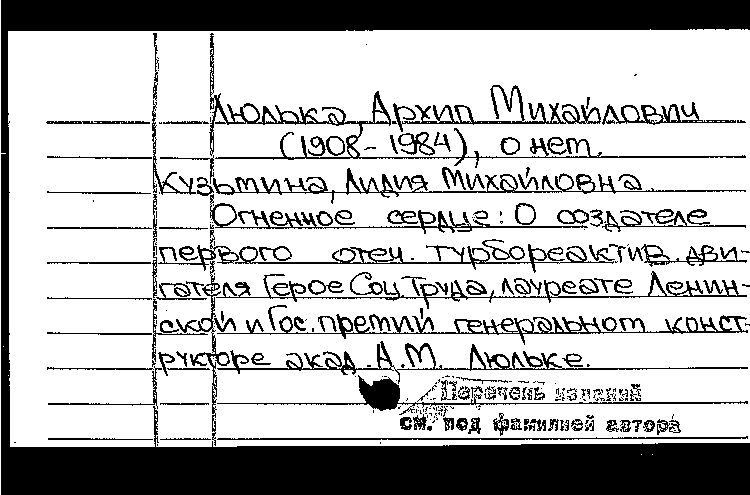 Люлька, Архип Михайлович
(1908-1984), о нем.
Кузьмина, Лидия Михайловна.
Огненное сердце: О создателе
первого отеч. турбореактив. дви-
гателя Герое Соц. Труда, лауреате Ленин-
ской и Гос. премий генеральном конст-
рукторе акад. А.М. Люльке.
Перечень изданий
см. под фамилией автора